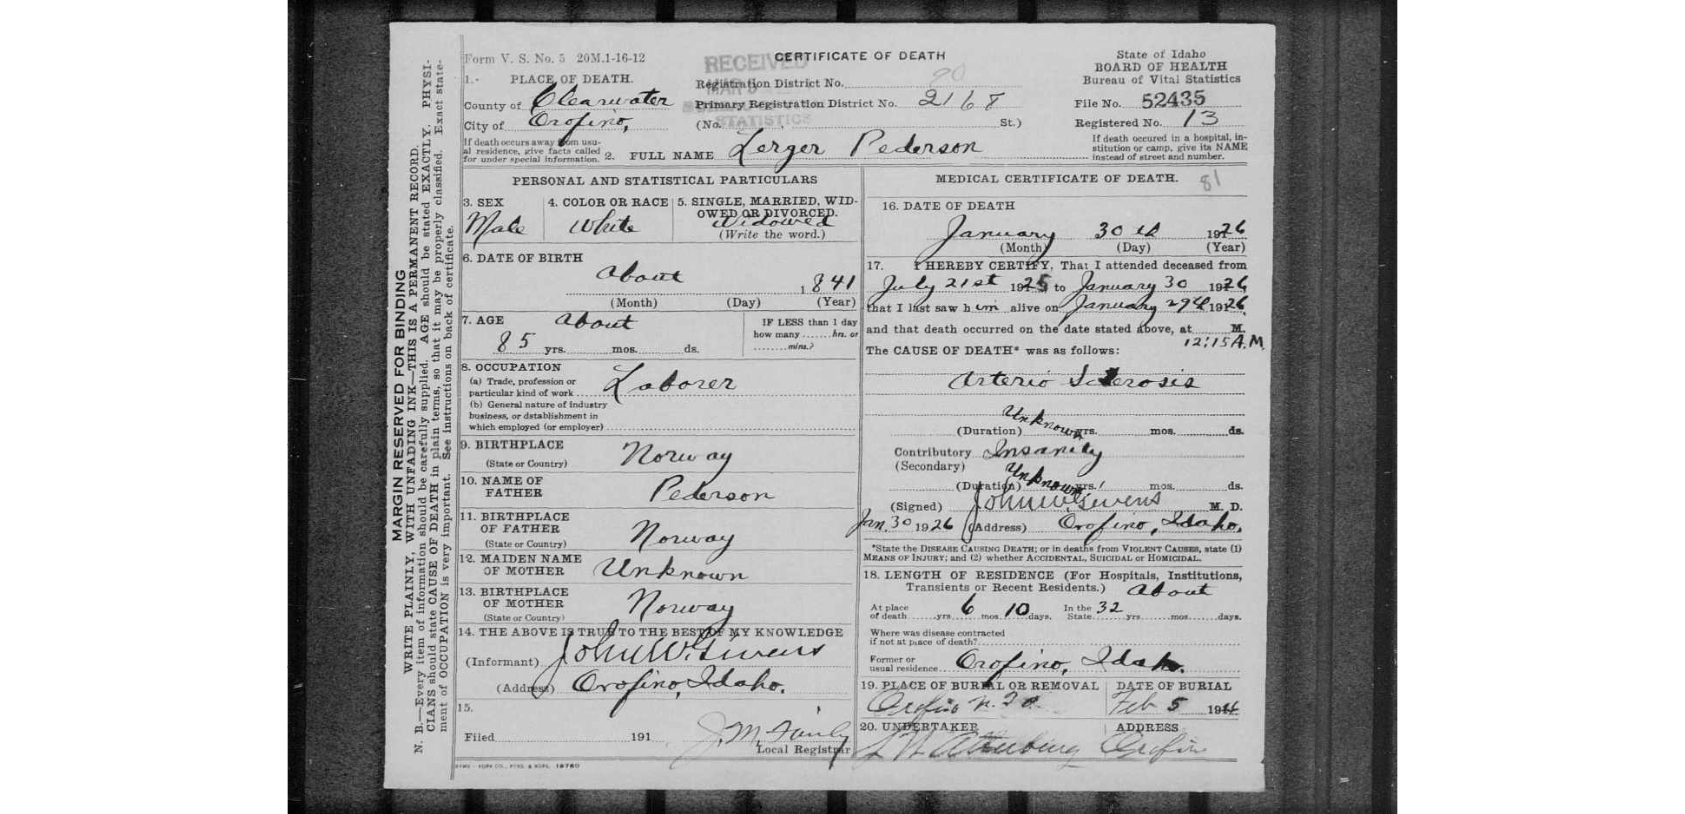 Form V. S. No. 5 20M.1-16-12
RECEIVED
MAR
STATISTICS
CERTIFICATE OF DEATH
State of Idaho
BOARD OF HEALTH
Bureau of Vital Statistics
1.- PLACE OF DEATH.
County of Clearwater
City of Orofino,
If death occurs away from usu-
al residence, give facts called
for under special information.
Registration District No. 90
Primary Registration District No. 2168
(No. St.)
File No. 52435
Registered No. 13
If death occured in a hospital, in-
stitution or camp, give its NAME
instead of street and number.
2. FULL NAME Lerger Pederson
PERSONAL AND STATISTICAL PARTICULARS
3. SEX
Male
4. COLOR OR RACE
White
5. SINGLE, MARRIED, WID-
OWED OR DIVORCED.
Widowed
(Write the word.)
6. DATE OF BIRTH
about 1841
(Month) (Day) (Year)
7. AGE about
85 yrs. mos. ds.
IF LESS than 1 day
how many hrs. or
mins.?
8. OCCUPATION
(a) Trade, profession or
particular kind of work Laborer
(b) General nature of industry
business, or dstablishment in
which employed (or employer)
9. BIRTHPLACE
(State or Country) Norway
10. NAME OF
FATHER Pederson
11. BIRTHPLACE
OF FATHER
(State or Country) Norway
12. MAIDEN NAME
OF MOTHER Unknown
13. BIRTHPLACE
OF MOTHER
(State or Country) Norway
14. THE ABOVE IS TRUE TO THE BEST OF MY KNOWLEDGE
(Informant) John W. Givens
(Address) Orofino, Idaho.
15.
Filed 191 J. M. Fairly
Local Registrar
MEDICAL CERTIFICATE OF DEATH. 81
16. DATE OF DEATH
January 30th 1926
(Month) (Day) (Year)
17. I HEREBY CERTIFY, That I attended deceased from
July 21st 1925 to January 30 1926
that I last saw him alive on January 29th 1926,
and that death occurred on the date stated above, at M.
12:15 A.M.
The CAUSE OF DEATH* was as follows:
Arterio Sclerosis
Unknown
(Duration) yrs. mos. ds.
Contributory Insanity
(Secondary)
Unknown
(Duration) yrs. mos. ds.
(Signed) John W. Givens M. D.
Jan. 30 1926 (Address) Orofino, Idaho.
*State the DISEASE CAUSING DEATH; or in deaths from VIOLENT CAUSES, state (1)
MEANS OF INJURY; and (2) whether ACCIDENTAL, SUICIDAL or HOMICIDAL.
18. LENGTH OF RESIDENCE (For Hospitals, Institutions,
Transients or Recent Residents.) About
At place
of death yrs 6 mos. 10 days. In the
State 32 yrs mos. days.
Where was disease contracted
if not at place of death?
Former or
usual residence Orofino, Idaho.
19. PLACE OF BURIAL OR REMOVAL
Orofino
DATE OF BURIAL
Feb 5 19
20. UNDERTAKER
ADDRESS
Orofino
MARGIN RESERVED FOR BINDING
WRITE PLAINLY, WITH UNFADING INK—THIS IS A PERMANENT RECORD.
N. B.—Every item of information should be carefully supplied. AGE should be stated EXACTLY. PHYSI-
CIANS should state CAUSE OF DEATH in plain terms, so that it may be properly classified. Exact state-
ment of OCCUPATION is very important. See instructions on back of certificate.